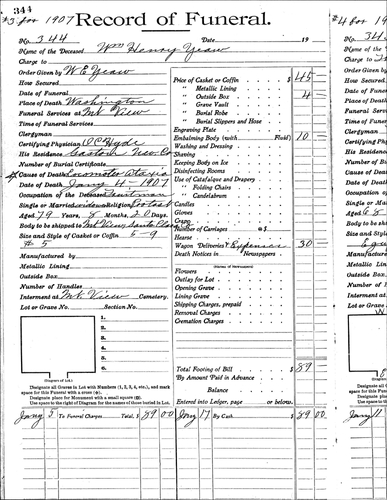 344
#3 for 1907
Record of Funeral.
No. 344 Date 19
Name of the Deceased Wm Henry Yeaw
Charge to
Order Given by W E Yeaw
How Secured
Date of Funeral
Place of Death Washington
Funeral Services at Mt View
Time of Funeral Services
Clergyman
Certifying Physician Hyde
His Residence
Number of Burial Certificate
Cause of Death Locomotor Ataxia
Date of Death Jany 4 1907
Occupation of the Deceased
Single or Married Religion
Aged 79 Years, 8 Months, 20 Days
Body to be shipped to Mt View
Size and Style of Casket or Coffin 5-9
# 5
Manufactured by
Metallic Lining
Outside Box
Number of Handles
Interment at Mt View Cemetery.
Lot or Grave No. Section No.
1.
2.
3.
4.
5.
6.
(Diagram of Lot.)
Designate all Graves in Lot with Numbers (1, 2, 3, 4, etc.), and mark
space for this Funeral with a cross (x).
Designate place for Monument with a small square
Use space to the right of Diagram for the names of those buried in Lot.
Price of Casket or Coffin $ 45
" Metallic Lining
" Outside Box 4
" Grave Vault
" Burial Robe
" Burial Slippers and Hose
Engraving Plate
Embalming Body (with Fluid) 10
Washing and Dressing
Shaving
Keeping Body on Ice
Disinfecting Rooms
Use of Catafalque and Drapery
" Folding Chairs
" Candelabrum
Candles
Gloves
Crape
Number of Carriages @ $
Hearse
Wagon Deliveries & Expenses 30
Death Notices in Newspapers
Flowers
Outlay for Lot
Opening Grave
Lining Grave
Shipping Charges, prepaid
Removal Charges
Cremation Charges
Total Footing of Bill $ 89
By Amount Paid in Advance
Balance
Entered into Ledger, page or below.
Jany 5 To Funeral Charges Total, $ 89 00 Jany 17 By Cash $ 89 00
#4 for 190
No. 34
Name of the
Charge to
Order Given
How Secured
Date of Fun
Place of Dea
Funeral Ser
Time of Fun
Clergyman
Certifying P
His Residen
Number of B
Cause of Dea
Date of Deat
Occupation o
Single or Ma
Aged 68
Body to be sh
Size and Sty
Manufactur
Metallic Lin
Outside Box
Number of H
Interment a
Lot or Grave
Designate all Gr
space for this Fun
Designate place
Use space to the
Jany 11